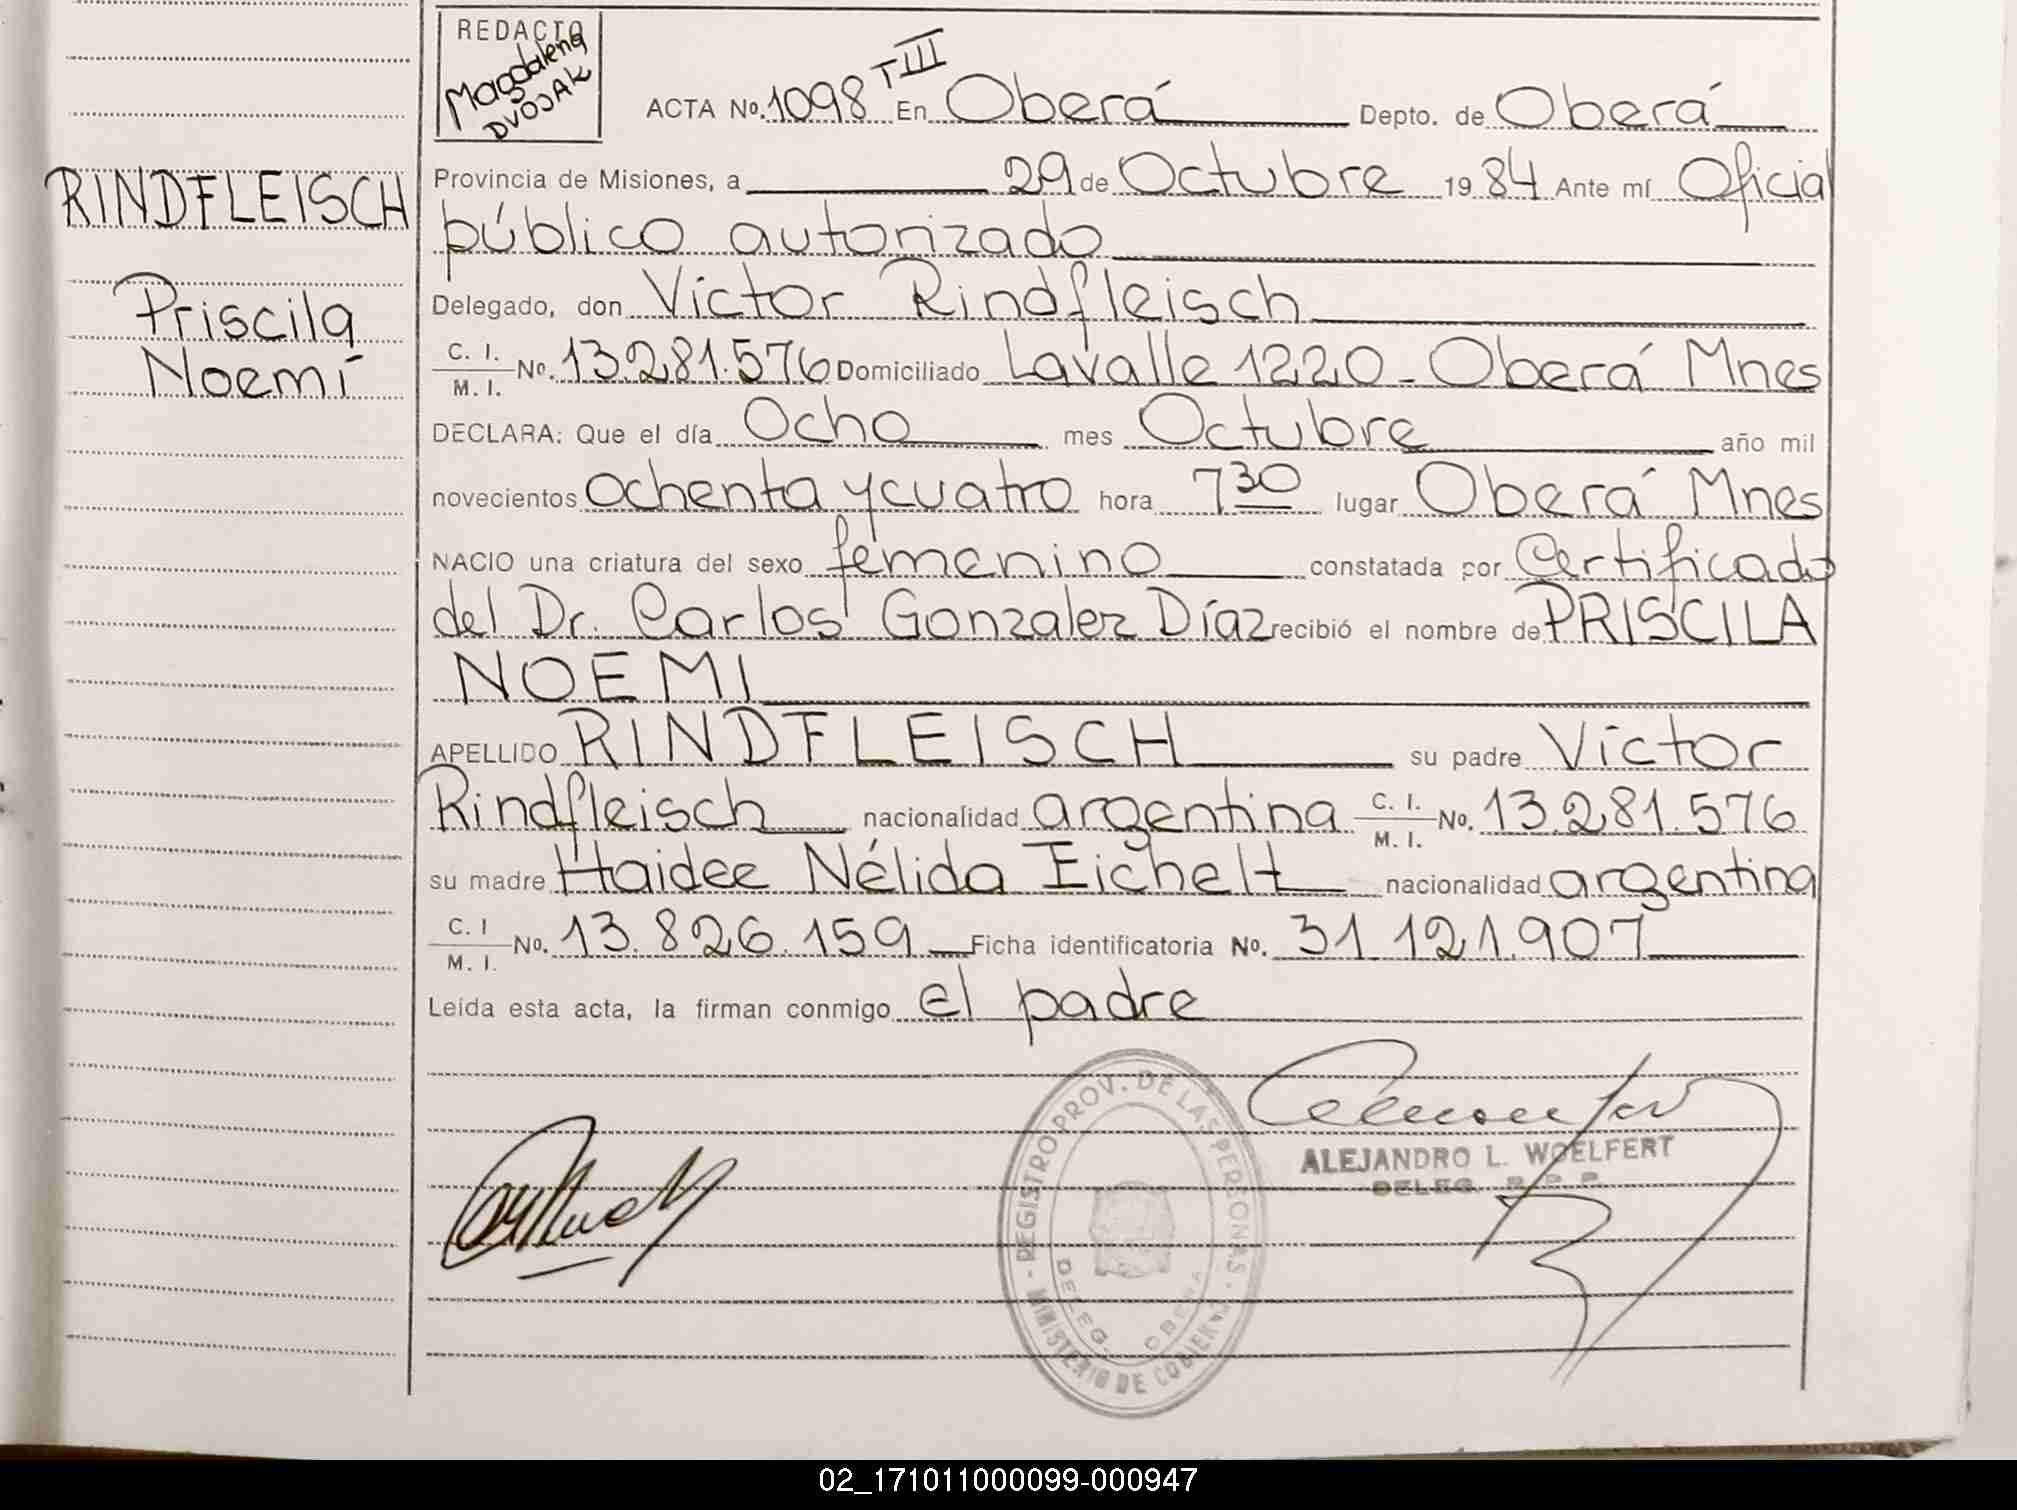 REDACTO
Magdalena
DVOJAK
ACTA No. 1098 T III En Oberá Depto. de Oberá
Provincia de Misiones, a 29 de Octubre 1984 Ante mí Oficial
público autorizado
Delegado, don Victor Rindfleisch
C. I. / M. I. No. 13.281.576 Domiciliado Lavalle 1220 - Oberá Mnes
DECLARA: Que el día Ocho mes Octubre año mil
novecientos ochenta y cuatro hora 7 30 lugar Oberá Mnes
NACIO una criatura del sexo femenino constatada por Certificado
del Dr. Carlos Gonzalez Díaz recibió el nombre de PRISCILA
NOEMI
APELLIDO RINDFLEISCH su padre Victor
Rindfleisch nacionalidad argentina C. I. / M. I. No. 13.281.576
su madre Haidee Nélida Eichelt nacionalidad argentina
C. I / M. I. No. 13.826.159 Ficha identificatoria No. 31.121.907
Leída esta acta, la firman conmigo el padre
RINDFLEISCH
Priscila
Noemí
REGISTRO PROV. DE LAS PERSONAS
MINISTERIO DE GOBIERNO
DELEG. OBERA
ALEJANDRO L. WOELFERT
DELEG. R. P. P.
02_171011000099-000947